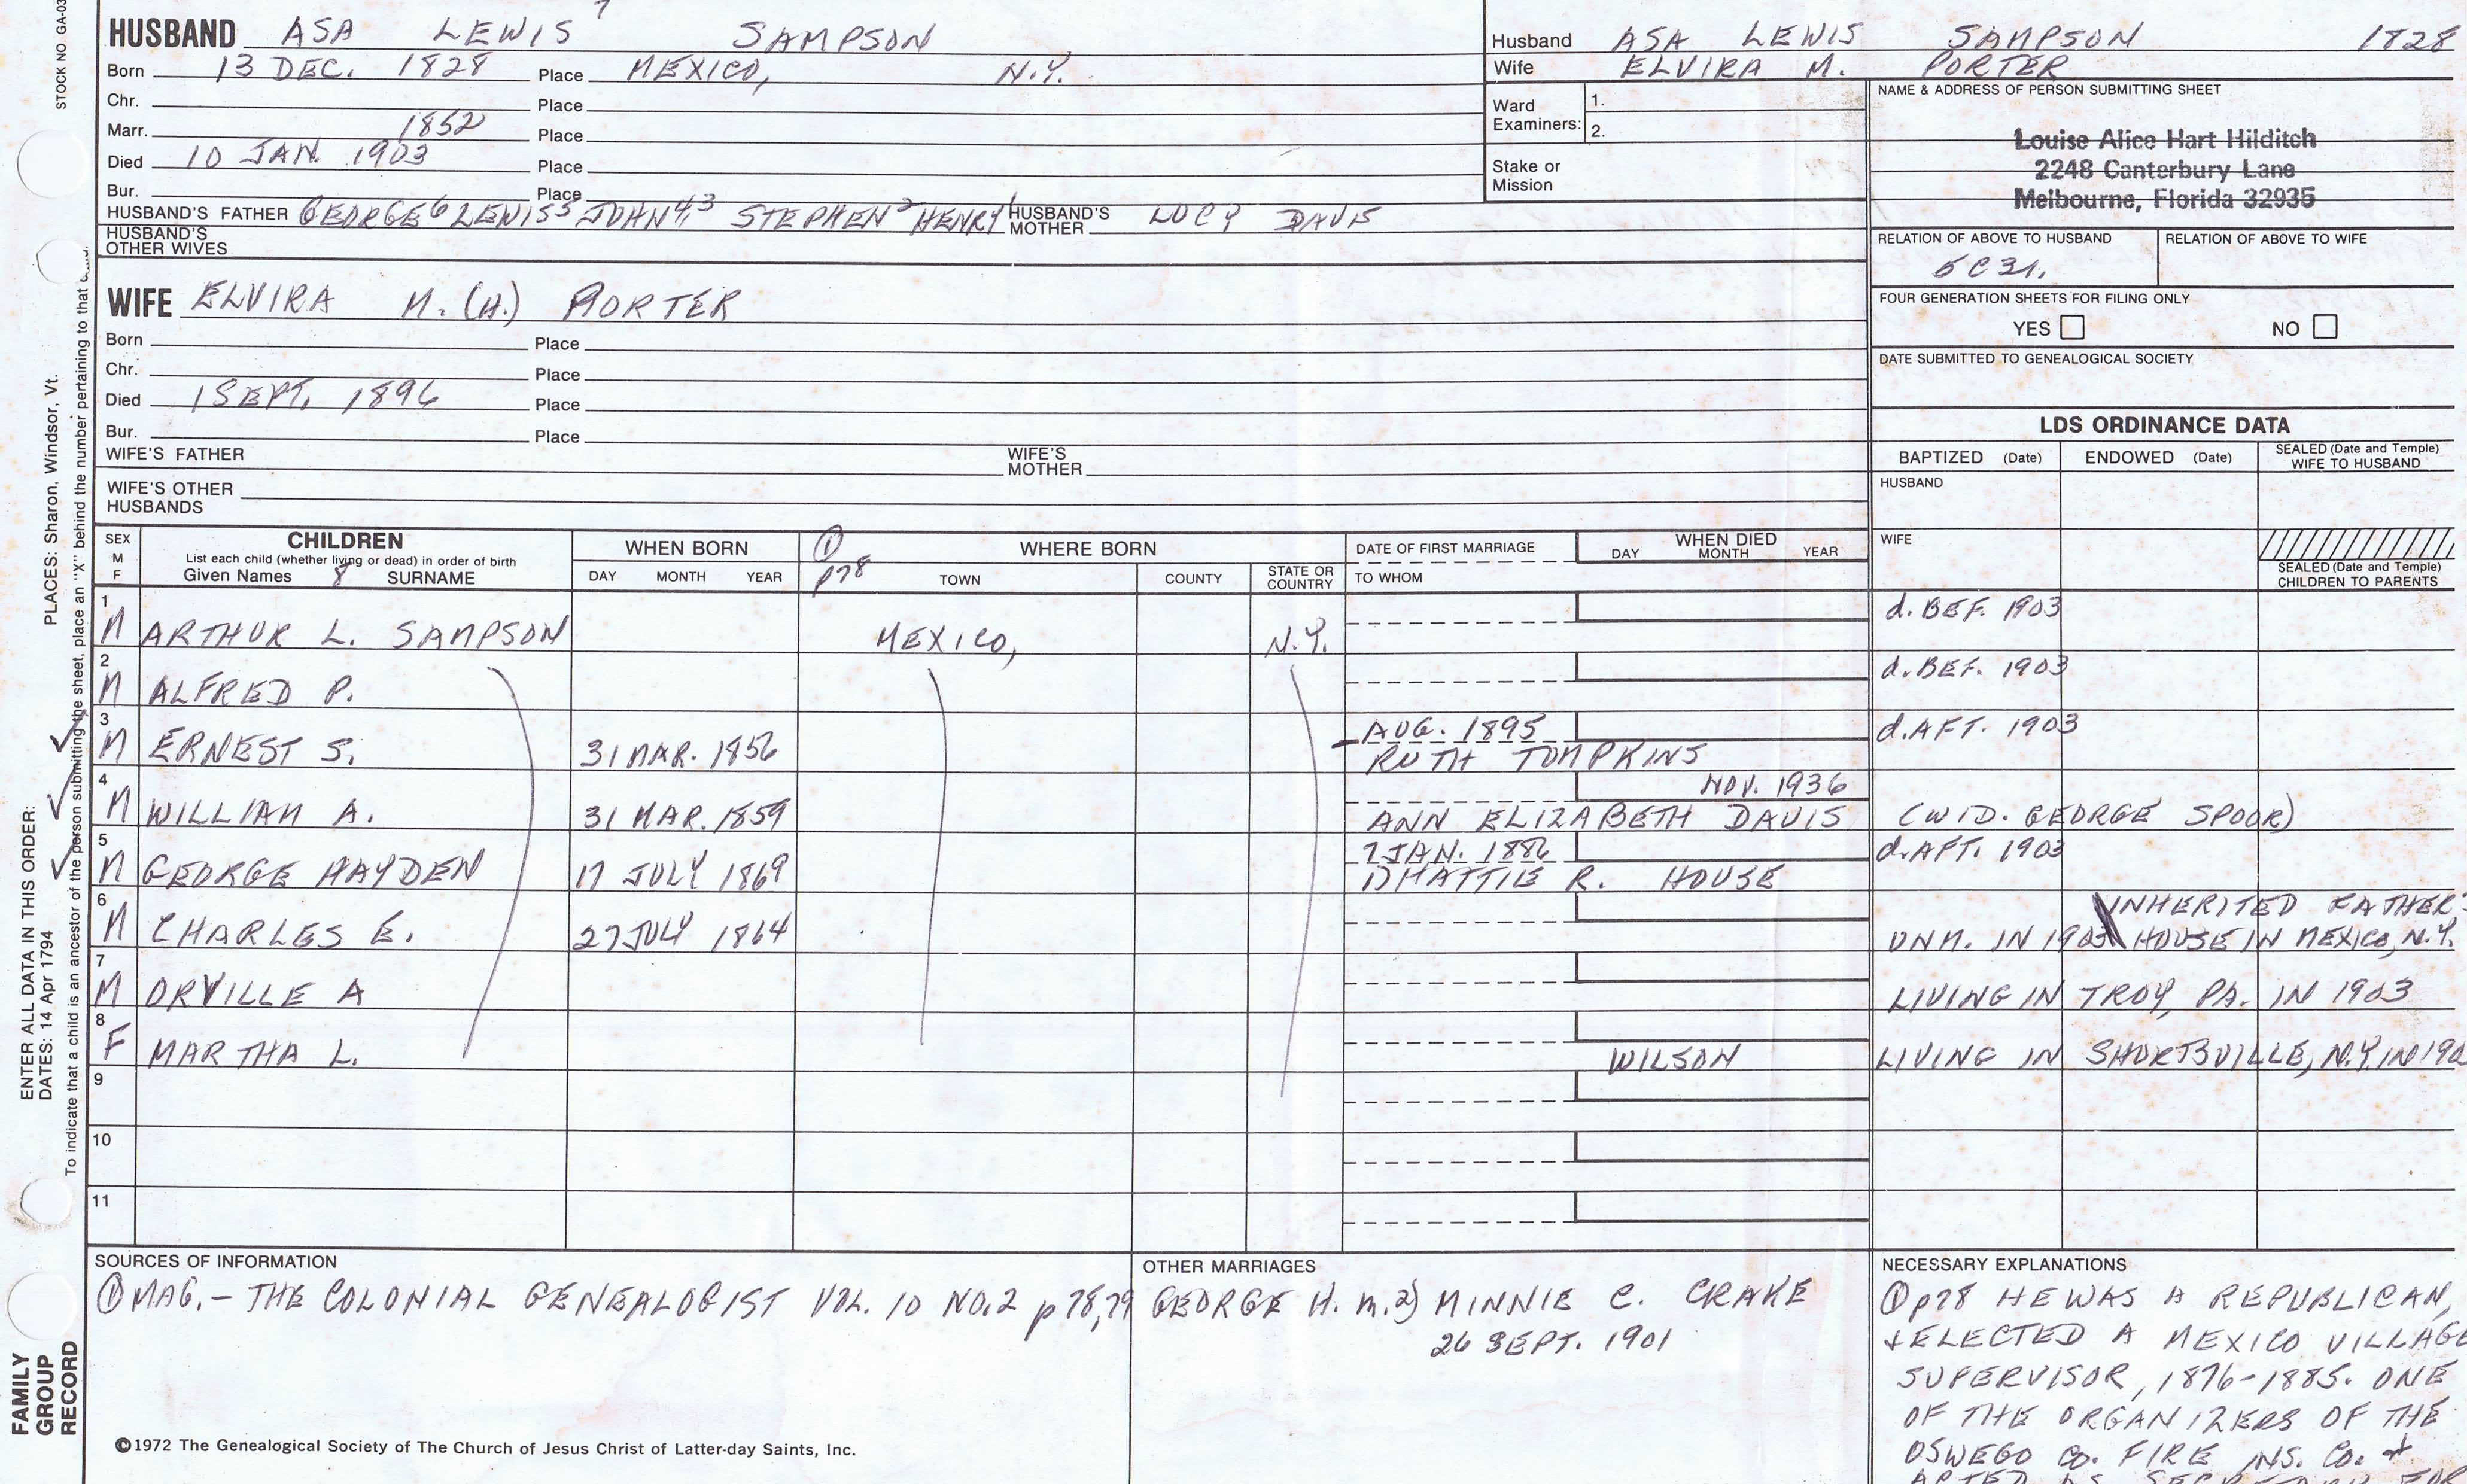 STOCK NO. GA-03
HUSBAND ASA LEWIS 7 SAMPSON
Born 13 DEC. 1828 Place MEXICO, N.Y.
Chr. Place
Marr. 1852 Place
Died 10 JAN. 1903 Place
Bur. Place
HUSBAND'S FATHER GEORGE 6 LEWIS 5 JOHN 4,3 STEPHEN 2 HENRY 1 HUSBAND'S MOTHER LUCY DAVIS
HUSBAND'S OTHER WIVES
WIFE ELVIRA M. (A.) PORTER
Born Place
Chr. Place
Died 1 SEPT. 1896 Place
Bur. Place
WIFE'S FATHER WIFE'S MOTHER
WIFE'S OTHER HUSBANDS
Husband ASA LEWIS SAMPSON 1828
Wife ELVIRA M. PORTER
Ward Examiners: 1.
2.
Stake or Mission
NAME & ADDRESS OF PERSON SUBMITTING SHEET
Louise Alice Hart Hilditch
2248 Canterbury Lane
Melbourne, Florida 32935
RELATION OF ABOVE TO HUSBAND RELATION OF ABOVE TO WIFE
FOUR GENERATION SHEETS FOR FILING ONLY
YES NO
DATE SUBMITTED TO GENEALOGICAL SOCIETY
LDS ORDINANCE DATA
BAPTIZED (Date) ENDOWED (Date) SEALED (Date and Temple) WIFE TO HUSBAND
HUSBAND
WIFE
SEALED (Date and Temple) CHILDREN TO PARENTS
SEX M F
CHILDREN
List each child (whether living or dead) in order of birth
Given Names 8 SURNAME
WHEN BORN
DAY MONTH YEAR
① p78
WHERE BORN
TOWN COUNTY STATE OR COUNTRY
DATE OF FIRST MARRIAGE
TO WHOM
WHEN DIED
DAY MONTH YEAR
1 M ARTHUR L. SAMPSON MEXICO, N.Y. d. BEF. 1903
2 M ALFRED P. d. BEF. 1903
3 M ERNEST S. 31 MAR. 1856 AUG. 1895 RUTH TOMPKINS d. AFT. 1903
4 M WILLIAM A. 31 MAR. 1859 NOV. 1936 ANN ELIZABETH DAVIS (WID. GEORGE SPOOR)
5 M GEORGE HAYDEN 17 JULY 1869 7 JAN. 1886 1) HATTIE R. HOUSE d. AFT. 1903
6 M CHARLES E. 27 JULY 1864 UNM. IN 1903 INHERITED FATHER'S HOUSE IN MEXICO, N.Y.
7 M ORVILLE A LIVING IN TROY, PA. IN 1903
8 F MARTHA L. WILSON LIVING IN SHORTSVILLE, N.Y. IN 190
9
10
11
SOURCES OF INFORMATION
① MAG. - THE COLONIAL GENEALOGIST VOL. 10 NO. 2 p 78, 79
OTHER MARRIAGES
GEORGE H. m. 2) MINNIE C. CRAKE
26 SEPT. 1901
NECESSARY EXPLANATIONS
① p78 HE WAS A REPUBLICAN,
+ ELECTED A MEXICO VILLAGE
SUPERVISOR, 1876-1885. ONE
OF THE ORGANIZERS OF THE
OSWEGO CO. FIRE INS. CO. +
ACTED AS SECRETARY FOR
©1972 The Genealogical Society of The Church of Jesus Christ of Latter-day Saints, Inc.
PLACES: Sharon, Windsor, Vt.
ENTER ALL DATA IN THIS ORDER:
DATES: 14 Apr 1794
To indicate that a child is an ancestor of the person submitting the sheet, place an "X" behind the number pertaining to that
FAMILY GROUP RECORD